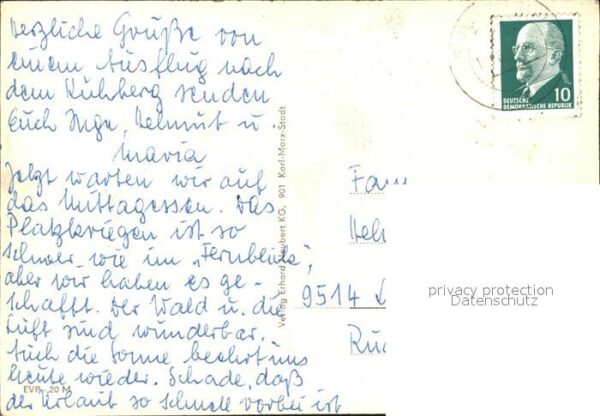 Herzliche Grüße von
einem Ausflug nach
dem Kühberg senden
Euch Inge, Helmut u.
Maria
Jetzt warten wir auf
das Mittagessen. Das
Platzkriegen ist so
schwer wie im „Fernblick",
aber wir haben es ge-
schafft. Der Wald u. die
Luft sind wunderbar.
Auch die Sonne beehrt uns
heute wieder. Schade, daß
der Urlaub so schnell vorbei ist
EVP -,20 M
Verlag Erhard Neubert KG, 901 Karl-Marx-Stadt
10
DEUTSCHE
DEMOKRATISCHE REPUBLIK
Fam
Hel
9514
privacy protection
Datenschutz